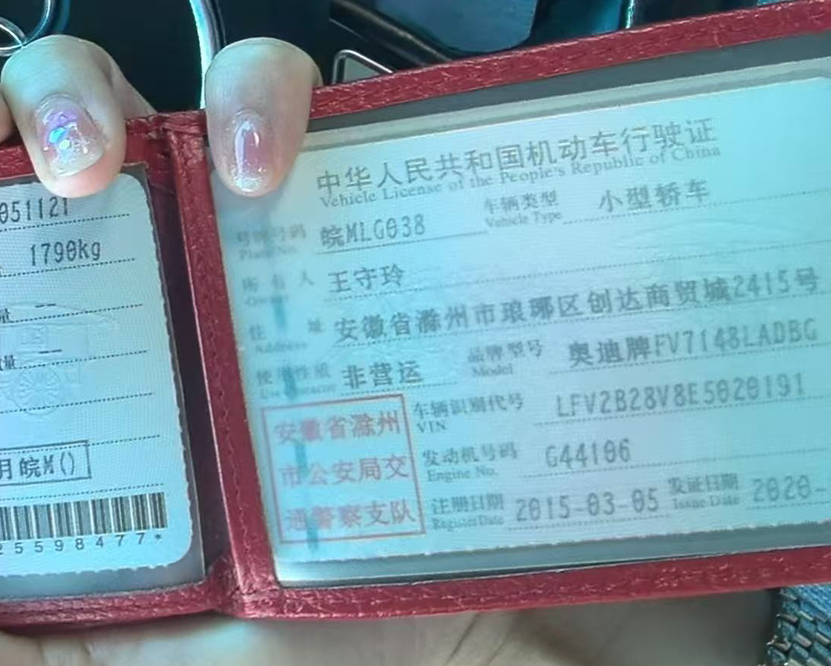 051121
1790kg
量 --
量 --
月皖M()
25598477*
中华人民共和国机动车行驶证
Vehicle License of the People's Republic of China
号牌号码 皖MLG038 车辆类型 小型轿车
Plate No. Vehicle Type
所有人 王守玲
Owner
住址 安徽省滁州市琅琊区创达商贸城2415号
Address
使用性质 非营运 品牌型号 奥迪牌FV7148LADBG
Use Character Model
安徽省滁州
市公安局交
通警察支队
车辆识别代号 LFV2B28V8E5020191
VIN
发动机号码 G44106
Engine No.
注册日期 2015-03-05 发证日期 2020-
Register Date Issue Date